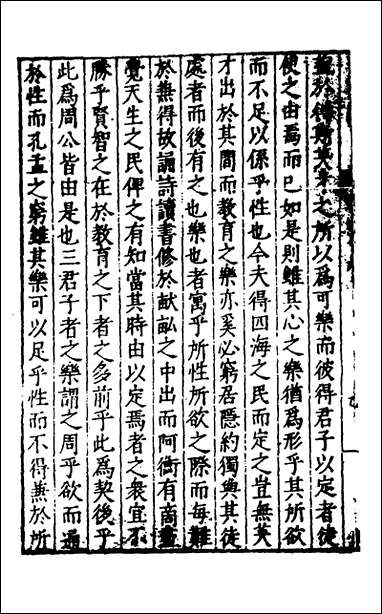 之所以為可樂而彼得君子以定者徒
使之由焉而已如是則雖其心之樂猶為形乎其所欲
而不足以係乎性也今夫得四海之民而定之豈無英
才出於其間而教育之樂亦奚必窮居隱約獨與其徒
處者而後有之也樂也者寓乎所性所欲之際而每難
於兼得故誦詩讀書修於畎畝之中出而阿衡有商
覺天生之民俾之有知當其時由以定焉者之衆宜不
勝乎賢智之在於教育之下者之多前乎此為契後乎
此為周公皆由是也三君子者之樂謂之周乎欲而通
於性而孔孟之窮雖其樂可以足乎性而不得兼於所